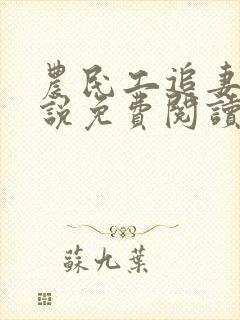 農民工追妻
說免費閱讀
蘇九葉